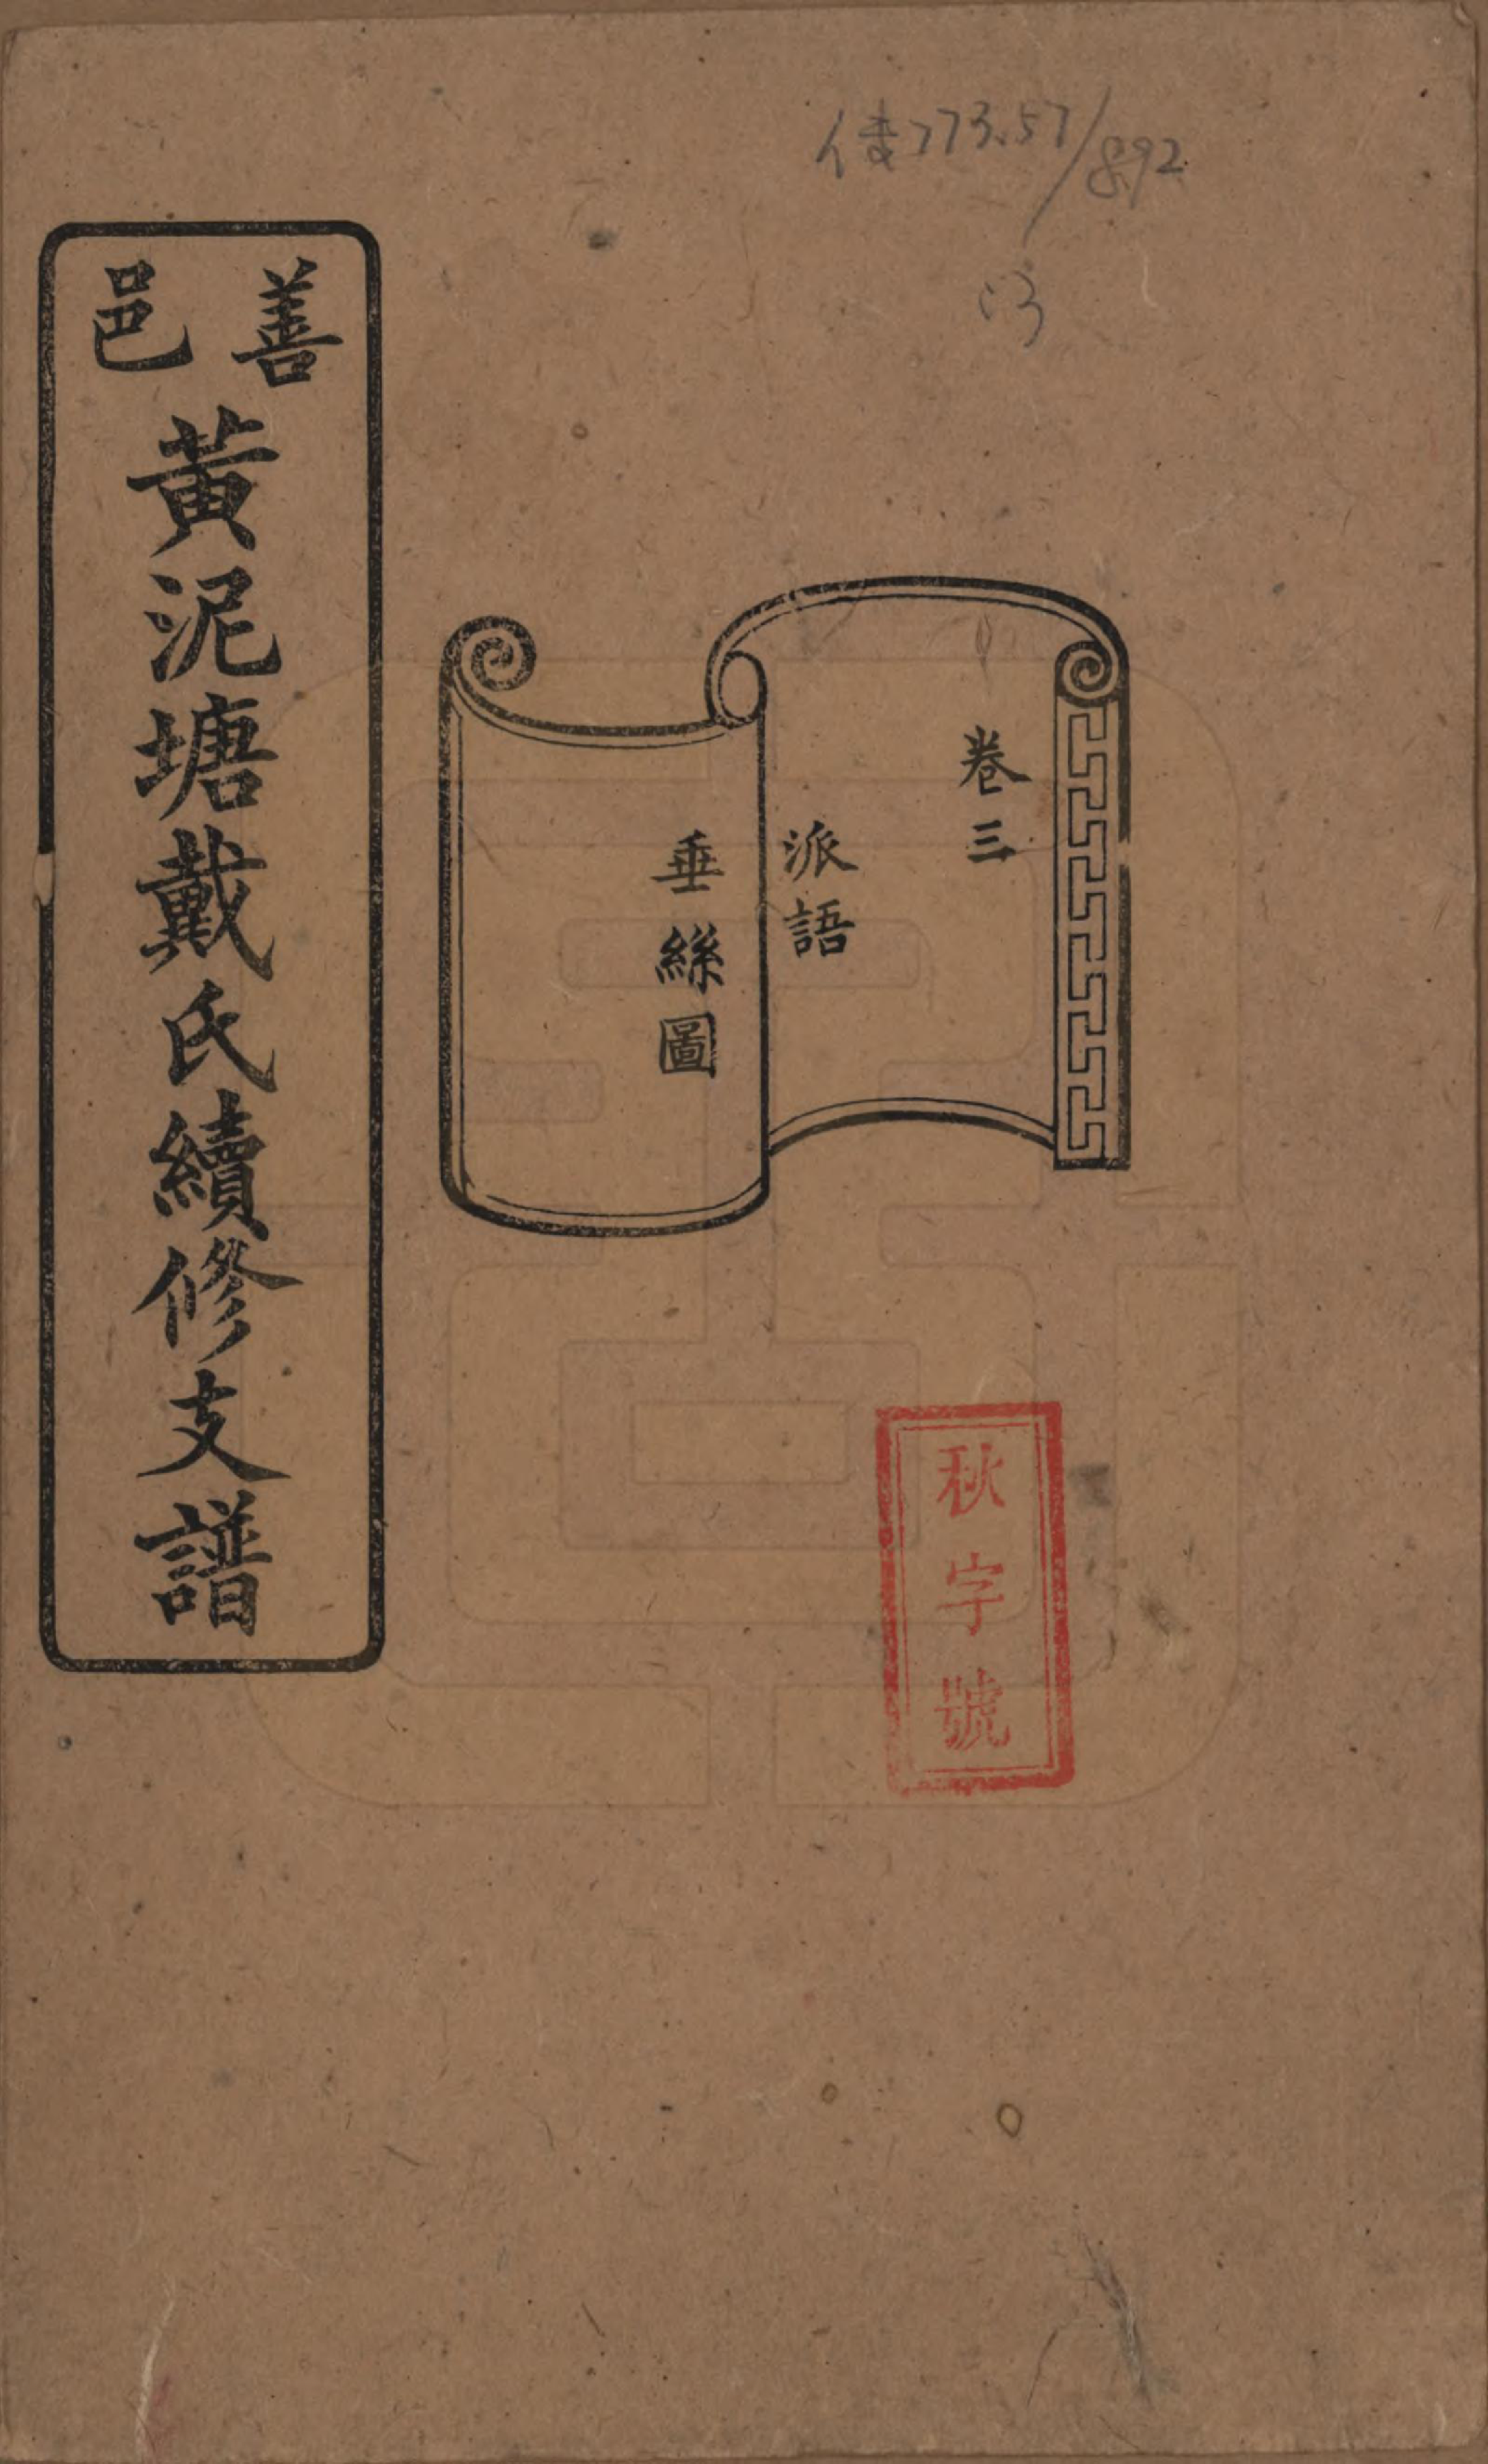 773.57/892
:3
善邑
黃泥塘戴氏續修支譜
卷三
派語
垂絲圖
秋字號